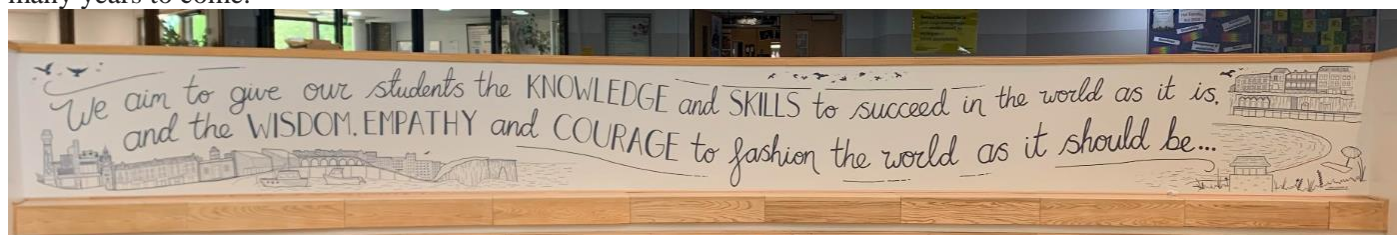 many years to come.
We aim to give our students the KNOWLEDGE and SKILLS to succeed in the world as it is,
and the WISDOM, EMPATHY and COURAGE to fashion the world as it should be...